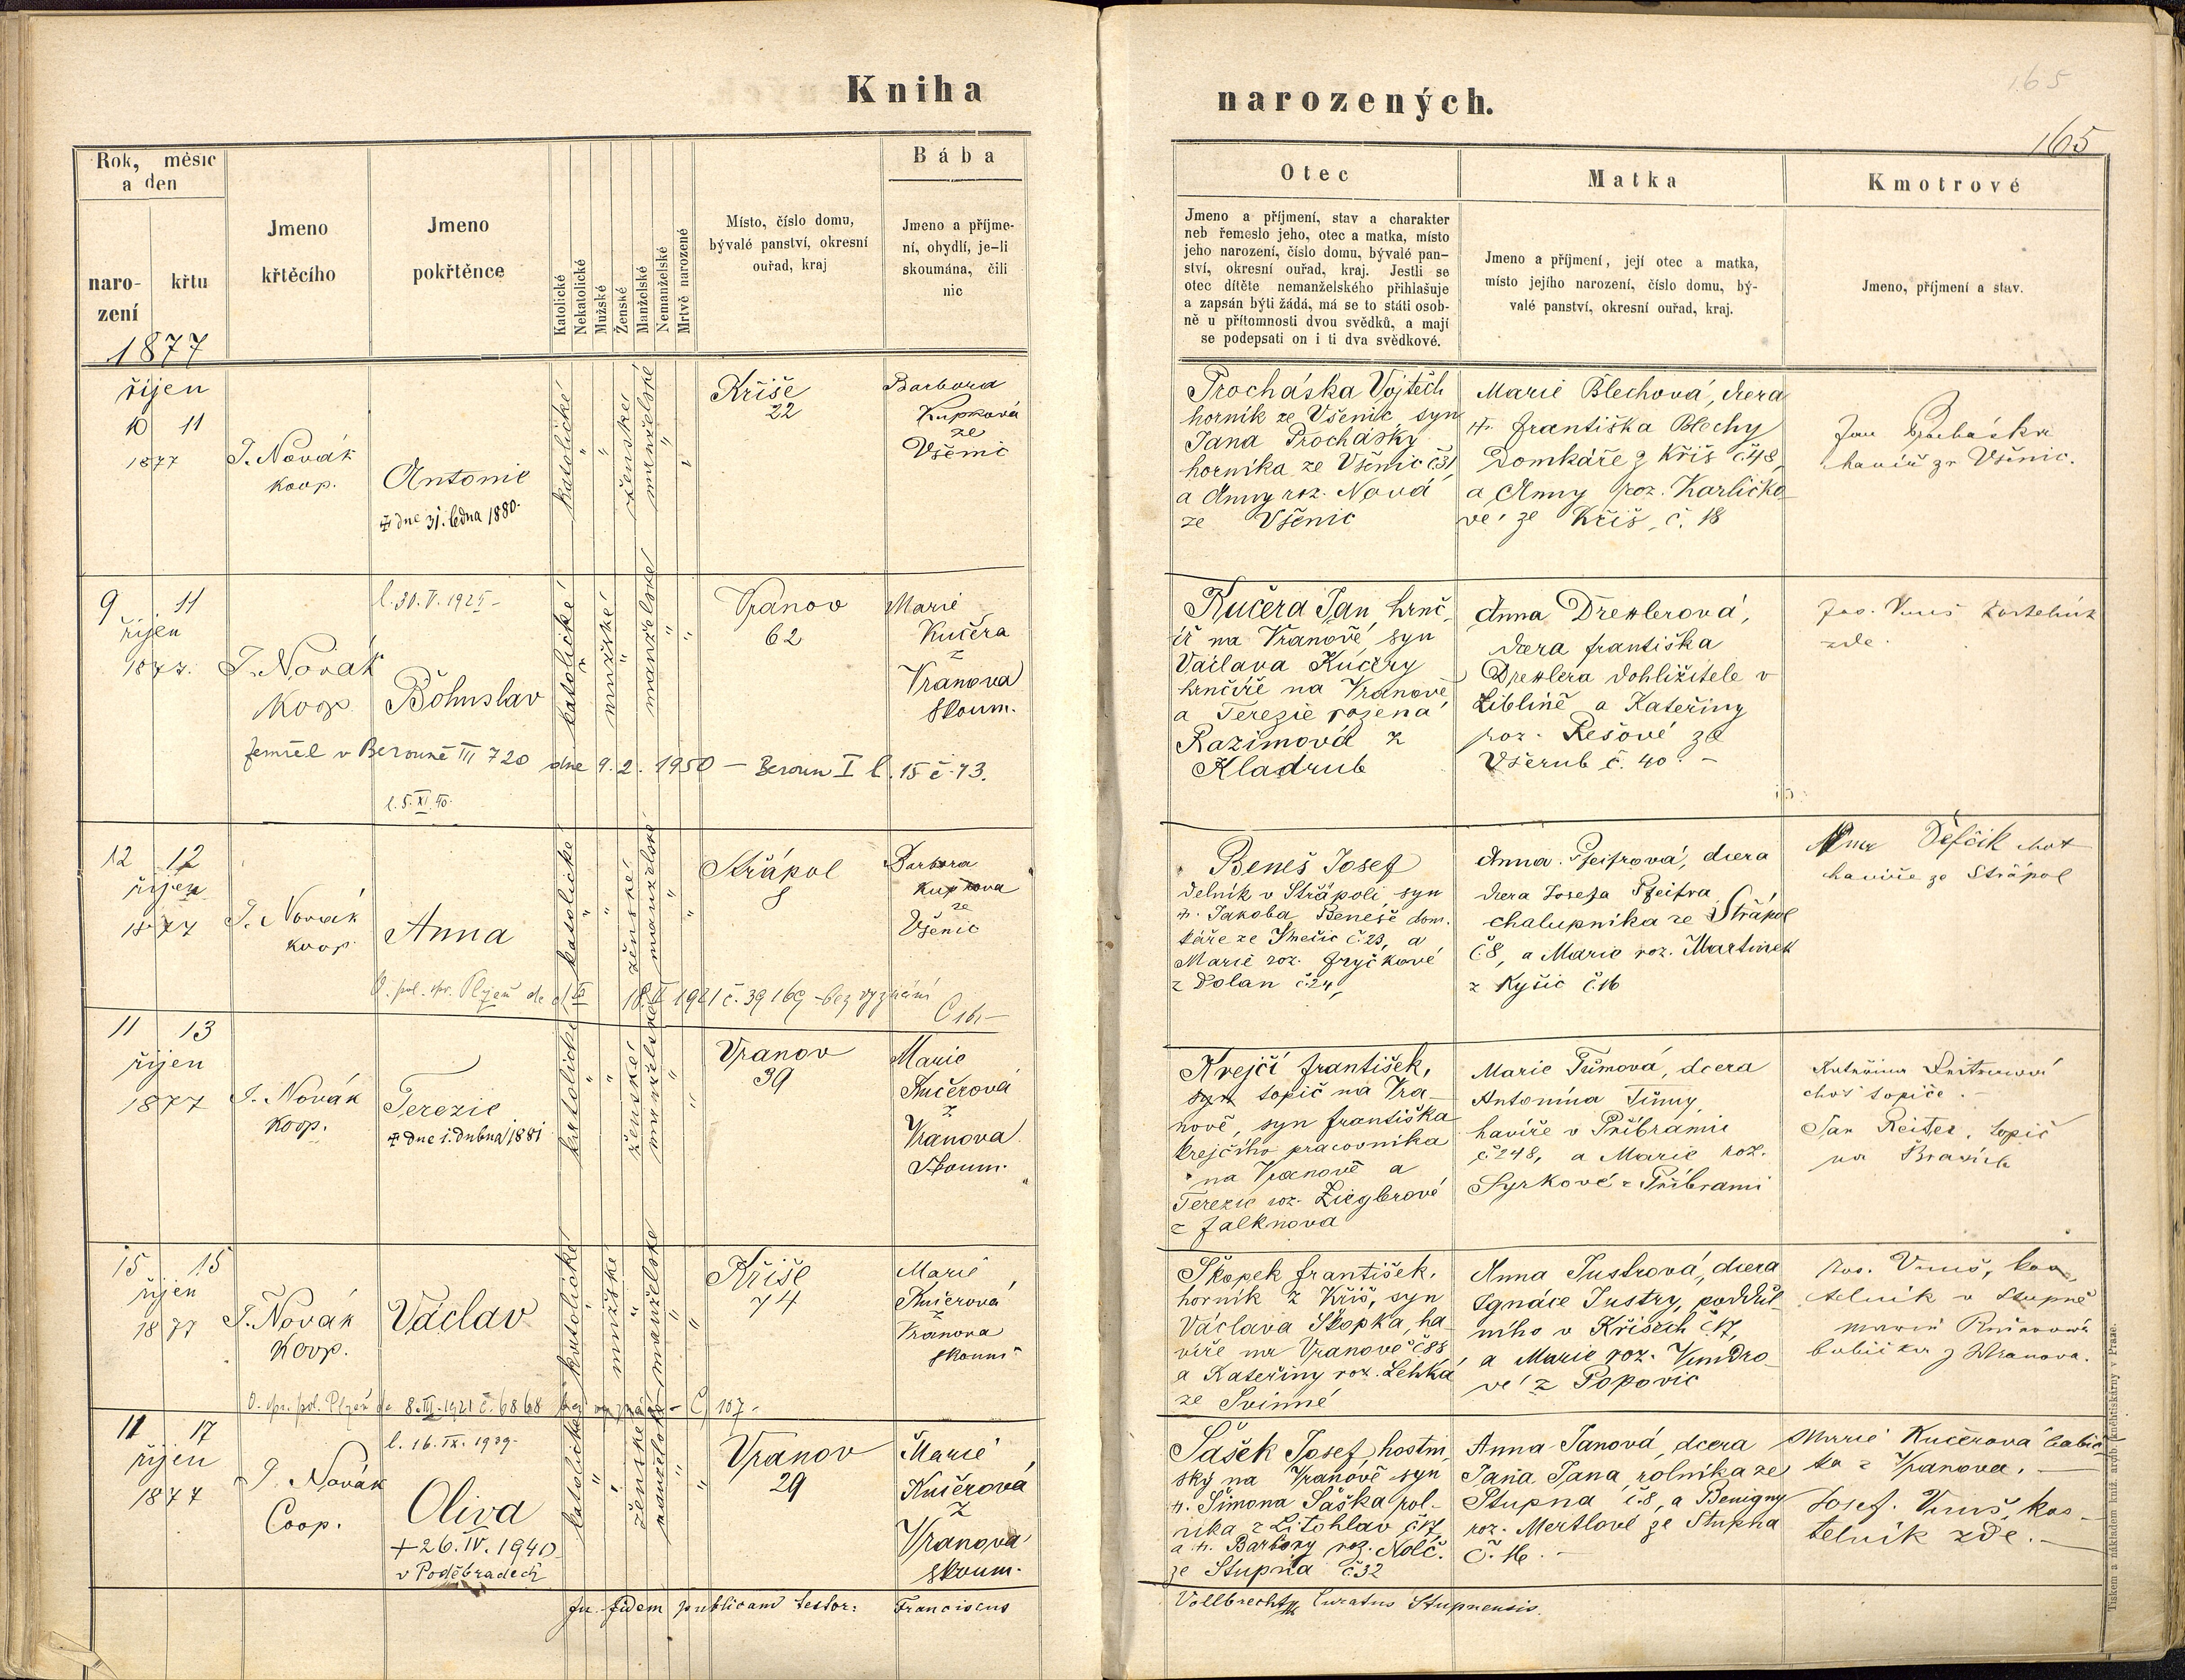 Kniha
narozených.
165
165
Rok, měsíc
a den
naro-
zení
křtu
1877
Jmeno
křtěcího
Jmeno
pokřtěnce
Katolické
Nekatolické
Mužské
Ženské
Manželské
Nemanželské
Mrtvě narozené
Místo, číslo domu,
bývalé panství, okresní
ouřad, kraj
Bába
Jmeno a příjme-
ní, obydlí, je-li
skoumána, čili
nic
Otec
Jmeno a příjmení, stav a charakter
neb řemeslo jeho, otec a matka, místo
jeho narození, číslo domu, bývalé pan-
ství, okresní ouřad, kraj. Jestli se
otec dítěte nemanželského přihlašuje
a zapsán býti žádá, má se to státi osob-
ně u přítomnosti dvou svědků, a mají
se podepsati on i ti dva svědkové.
Matka
Jmeno a příjmení, její otec a matka,
místo jejího narození, číslo domu, bý-
valé panství, okresní ouřad, kraj.
Kmotrové
Jmeno, příjmení a stav.
říjen
10 11
1877
J. Novák
koop.
Antonie
dne 31. ledna 1880.
katolické
" "
ženské
manželské
" "
Kříše
22
Barbora
Kupková
ze
Všenic
Procháska Vojtěch
horník ze Všenic, syn
Jana Prochásky
horníka ze Všenic č31
a Anny roz. Nová
ze Všenic
Marie Blechová, dcera
Františka Blechy
Domkáře z Kříš č.48,
a Anny roz. Karlíčko-
vé ze Kříš, č. 18
Jan
havíř ze Všenic.
9 11
říjen
1877.
J. Novák
Koop.
l. 30. V. 1925-
Bohuslav
zemřel v Berouně III 720 dne 9. 2. 1950 - Beroun I l. 15 č. 43.
l. 5. XI. 40.
katolické
"
mužské
"
manželské
" "
Vranov
62
Marie
Kučera
z
Vranova
skoum.
Kučera Jan, hrnč-
íř na Vranově, syn
Václava Kučery
hrnčíře na Vranově
a Terezie rozená
Razimová z
Kladrub
Anna Drexlerová,
dcera Františka
Drexlera dohližitele v
Liblíně a Kateřiny
roz. Rešové ze
Všerub č. 40. -
Jos. Vmuš kostelník
zde.
12 12
říjen
1877
J. Novák
koop.
Anna
katolické
" "
ženské
manželské
" "
Střápol
8
Barbora
Kupková
ze
Všenic
18. II 1921 č. 39169 - bez vyznání
Beneš Josef
dělník v Střápoli, syn
Jakoba Beneše dom-
káře ze Smečic č.23, a
Marie roz. Fryčkové
z Dolan č.24,
Anna Pfeifrová, dcera
dcera Josefa Pfeifra
chalupníka ze Střápol
č8, a Marie roz. Martinek
z Kyšic č.16
Anna choť
havíře ze Střápol
11 13
říjen
1877
J. Novák
Koop.
Terezie
dne 1. dubna 1881
katolické
" "
ženské
manželské
" "
Vranov
39
Marie
Kučerová
z
Vranova
Skoum.
Krejčí František,
syn topič na Vra-
nově, syn Františka
Krejčího pracovníka
na Vranově a
Terezie roz. Zieglerové
z Falknova
Marie Tůmová, dcera
Antonína Tůmy,
havíře v Příbrami
č248, a Marie roz.
Syrkové z Příbrami
choť topiče. -
Jan Reiter, topič
na
15 15
říjen
1877
J. Novák
Koop.
Václav
katolické
"
mužské
"
manželské
" "
Kříše
74
Marie
Kučerová
z
Vranova
skoum.
8. III. 1921 č. 6868 - Č 107 -
Škopek František,
horník z Kříš, syn
Václava Škopka, ha-
víře na Vranově č88
a Kateřiny roz. Lehká
ze Svinné
Anna Justrová, dcera
Ignáce Justry, poddůl-
ního v Kříších č.17,
a Marie roz. Vondro-
vé z Popovic
Jos. Vmuš, kos-
telník v Stupně
Marie Kučerová
babička z Vranova.
11 17
říjen
1877
J. Novák
Coop.
l. 16. IX. 1939-
Oliva
+ 26. IV. 1940
v Poděbradech
katolické
" "
ženské
manželské
" "
Vranov
29
Marie
Kučerová
z
Vranova
skoum.
Šašek Josef, hostin-
ský na Vranově syn
Šimona Šáška rol-
níka z Litohlav č.17,
a Barbory roz. Nolč.
ze Stupna č32
Anna Janová, dcera
Jana Jana, rolníka ze
Stupna č.8, a Benigny
roz. Mertlové ze Stupna
č. 16. -
Marie Kučerová babič-
ka z Vranova. -
Josef Vmuš, kos-
telník zde. -
In fidem publicam testor: Franciscus
Vollbrecht Curatus Stupnensis.
Tiskem a nákladem kníž. arcib. kněhtiskárny v Praze.